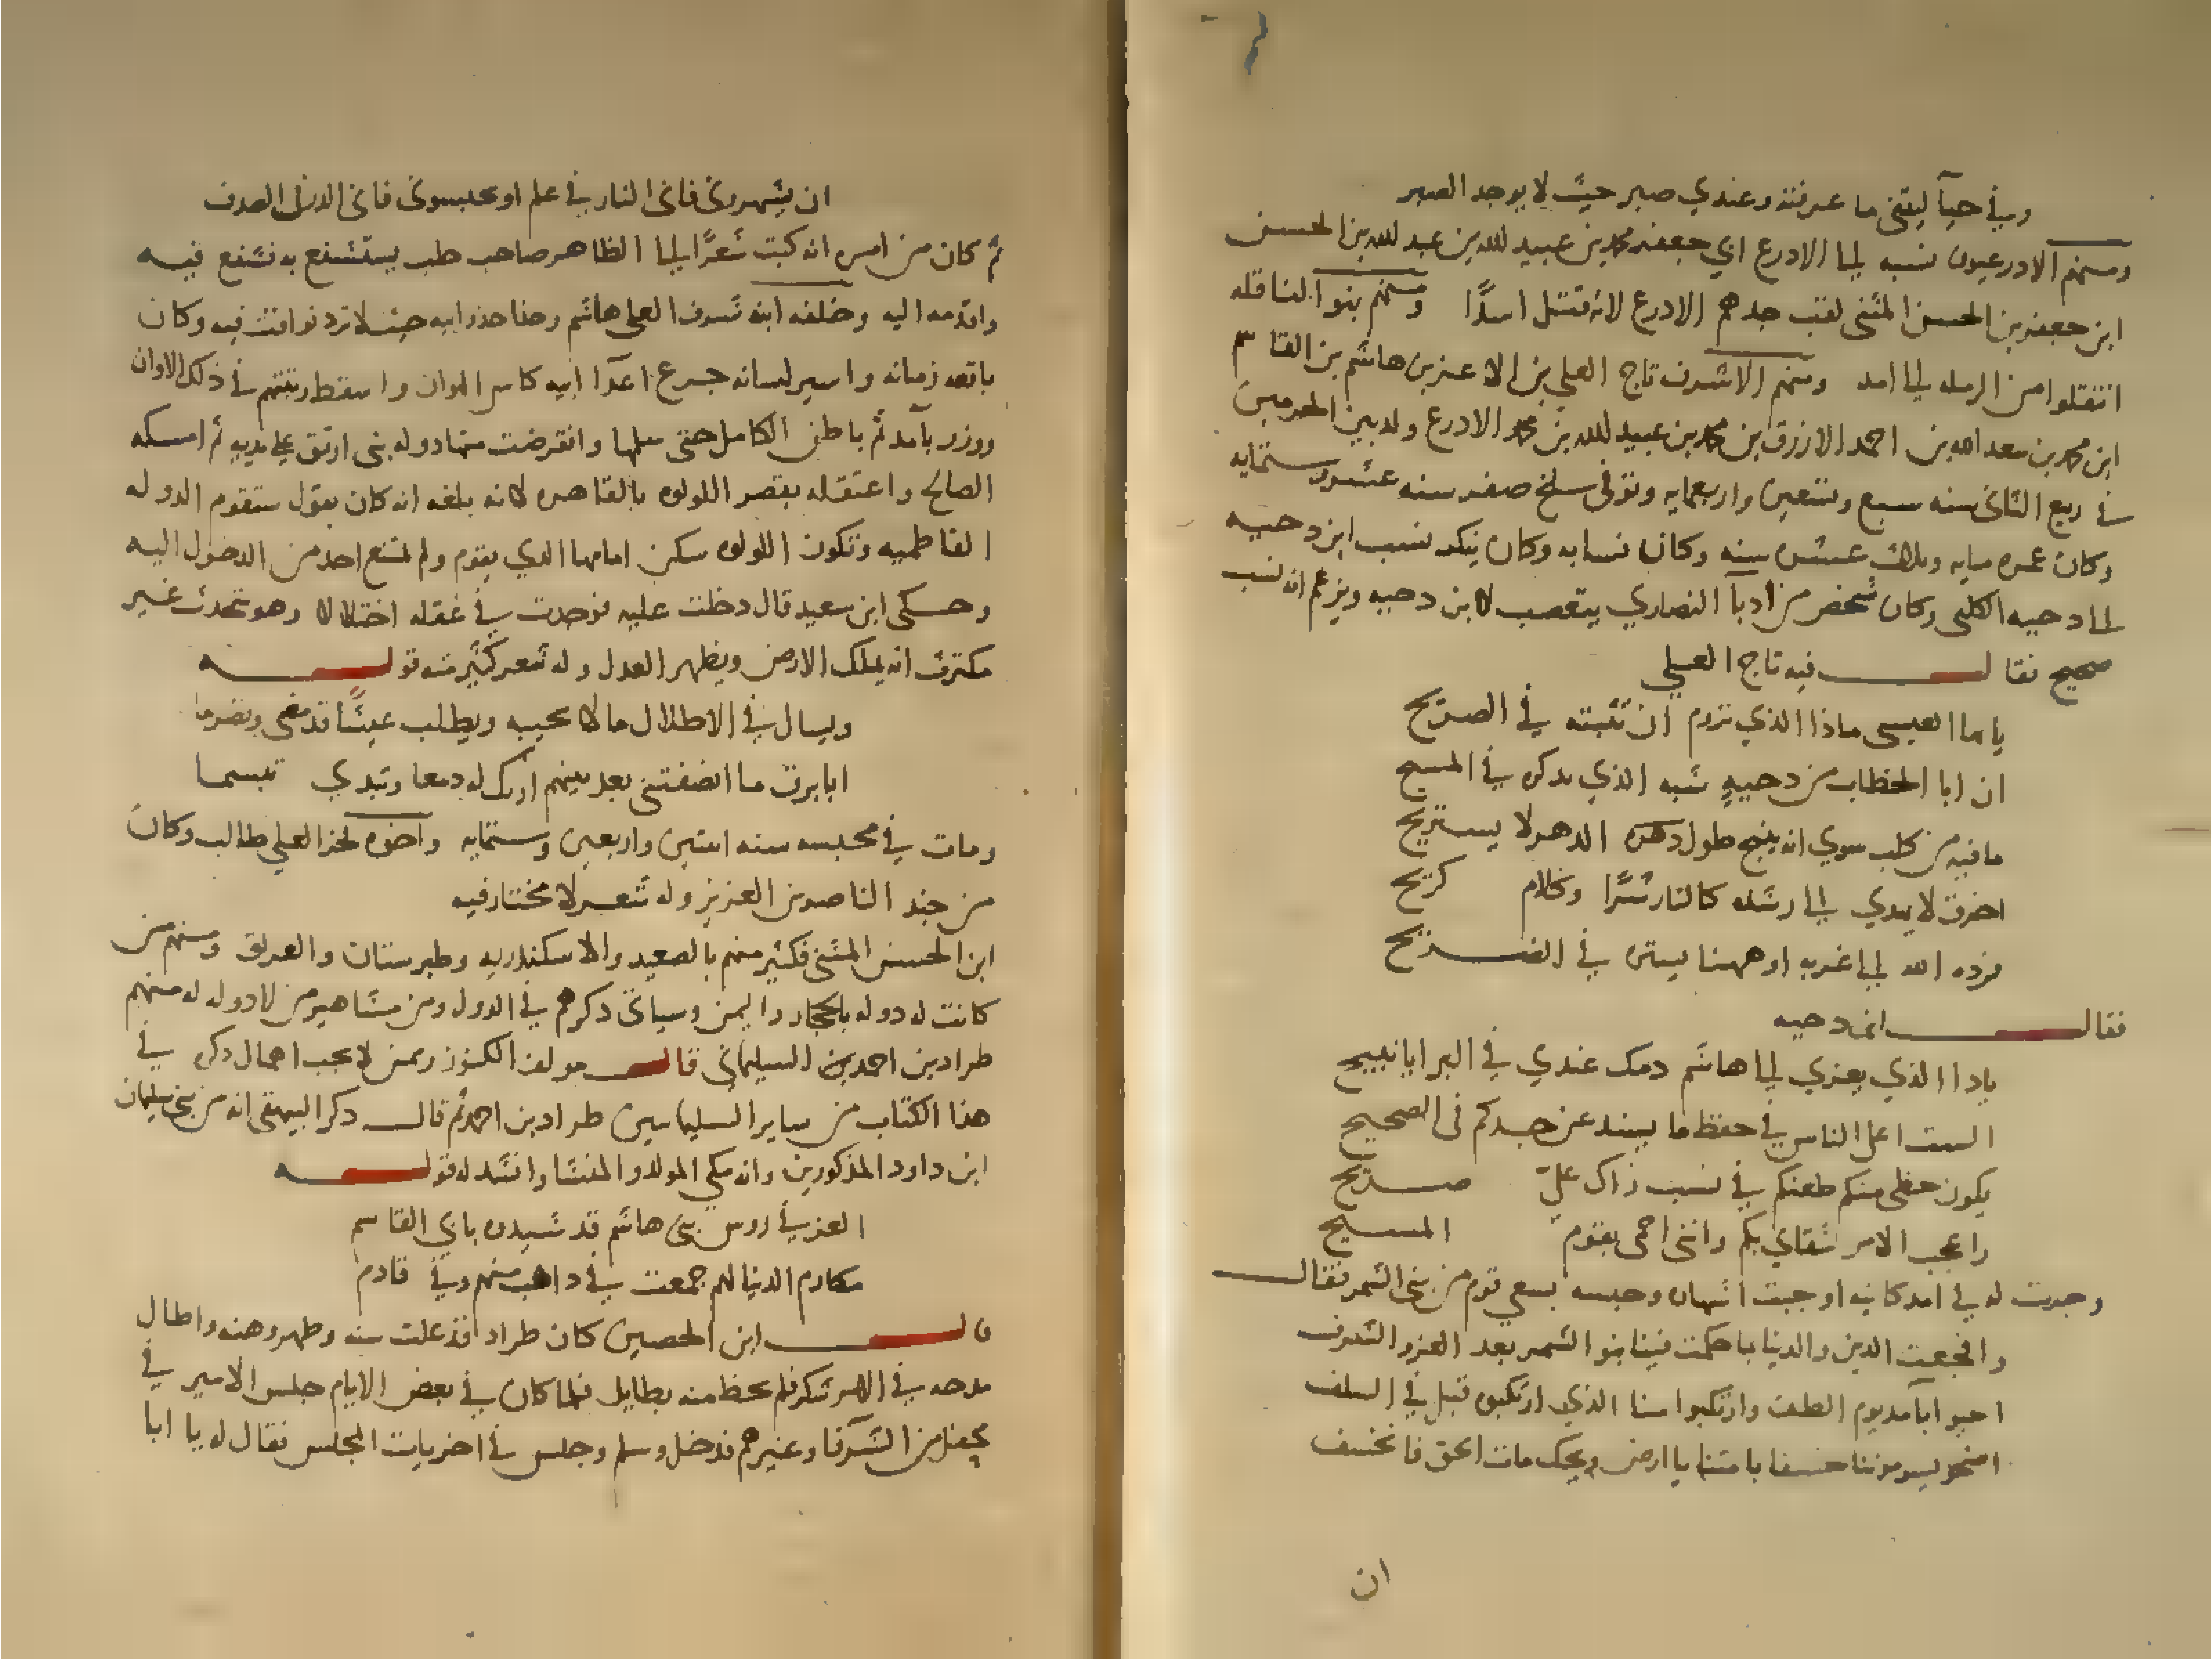 وبي حياً ليتني ما عرفته وعندي صبر حيث لا يوجد الصبر
ومنهم الادرعيون نسبه الى الادرع ابي جعفر محمد بن عبيد الله بن عبد الله بن الحسن
ابن جعفر بن الحسن المثنى لقب جدهم الادرع لانه قتل اسدًا ومنهم بنو الناقله
انتقلوا من الرمله الى امد ومنهم الاشرف تاج العلى بن الاعز بن هاشم بن القاسم
ابن محمد بن سعد الله بن احمد الازرق بن محمد بن عبيد الله بن محمد الادرع ولد بين الحرمين
في ربيع الثاني سنه سبع وتسعين واربعمايه وتوفي سلخ صفر سنه عشر وستمايه
وكان عمره مايه وثلاث عشره سنه وكان نسابه وكان ينكر نسب ابن دحيه
الى دحيه الكلبي وكان شخص من ادبا النصاري يتعصب لابن دحيه ويزعم ان نسبه
صحيح فقال فيه تاج العلي
يا ما العيسى ماذا الذي تروم ان تثبته في الصريح
ان ابا الخطاب من دحيةٍ شبه الذي يذكره في المسيح
ما فيه من كلب سوي انه ينبح طول دهره الدهر لا يستريح
اخرق لا يهدي الى رشده كالنار شرًا وكلام كريح
فرده الله الى غربه او ههنا يستره في الضريح
فقال ابن دحيه
يا ذا الذي يعزي الى هاشم ذمك عندي في البرايا نبيح
الست اعلى الناس في حفظ ما يسند عن جدكم في الصحيح
يكون حظي منكم طعنكم في نسب زاك عليّ صريح
واعجب الامر شقاي بكم وانني احمى بقوم المسيح
وجرت له في امد كاينه اوجبت اشهاره وحبسه بسعي قوم من بني الشمر فقال
وافجعت الدين والدنيا بما حكمت فينا بنو الشمر بعد العز والشرف
احيو ابآمد يوم الطف وارتكبوا منا الذي ارتكبوه قبل في السلف
اضحو يسومونا خسفا بامتنا يا ارض ويحك مات الحق فانخسف
ان
ان يشهروني فاني النار في علم او يحبسوني فاني الدر في الصدف
ثم كان من امره انه كتب شعرًا الى الظاهر صاحب حلب يستشفع به فشفع فيه
واقدمه اليه وخلفه ابنه شرف العلى هاشم وحذا حذو ابيه حيث لا ترد نوافث فيه وكان
باقعه زمانه واسير لسانه جرع اعدآ ابيه كاس الهوان واسقط رتبتهم في ذلك الاوان
ووزر بآمد ثم باطن الكامل حتى سلمها وانقرضت منها دوله بني ارتق على يديه ثم امسكه
الصالح واعتقله بقصر اللولوه بالقاهره لانه بلغه انه كان يقول ستقوم الدوله
الفاطميه وتكون اللولوه سكن امامها الذي يقوم ولم يمنع احد من الدخول اليه
وحكى ابن سعيد قال دخلت عليه فوجدت في عقله اختلالا وهو يتحدث غير
مكترث انه يملك الارض ويظهر العدل وله شعر كثير منه قوله
ويسال في الاطلال ما لا يجيبه ويطلب عيشًا قد مضى وتصرما
ايا برق ما انصفتني بعد بينهم اريك له دمعا وتبدي تبسما
ومات في محبسه سنه اثنين واربعين وستمايه واخوه فخذ العلي طالب وكان
من جند الناصر بن العزيز وله شعر لا مختار فيه
ابن الحسن المثنى فكثير منهم بالصعيد والاسكندريه وطبرستان والعراق ومنهم من
كانت له دوله بالحجاز واليمن وسياتي ذكرهم في الدول ومن مشاهير من لا دوله له منهم
طراد بن احمد بن السليماني قال مولف الكنوز وممن لا يجب اهمال ذكره في
هذا الكتاب من ساير السليمانيين طراد بن احمد ثم قال ذكر البيهقي انه من بني سليمان
ابن داود المذكورين وانه مكي المولد والمنشا وانشد له قوله
العز في روس بني هاشم قد شيدوه بابي القاسم
مكارم الدنيا لهم جمعت في ذاهب منهم وفي قادم
قال ابن الحصين كان طراد قد علت سنه وظهر وهنه واطال
مدحه في الامر شكر فلم يحظ منه بطايل فلما كان في بعض الايام جلس الامير في
محفل من الشرفا وغيرهم فدخل وسلم وجلس في اخريات المجلس فقال له يا ابا